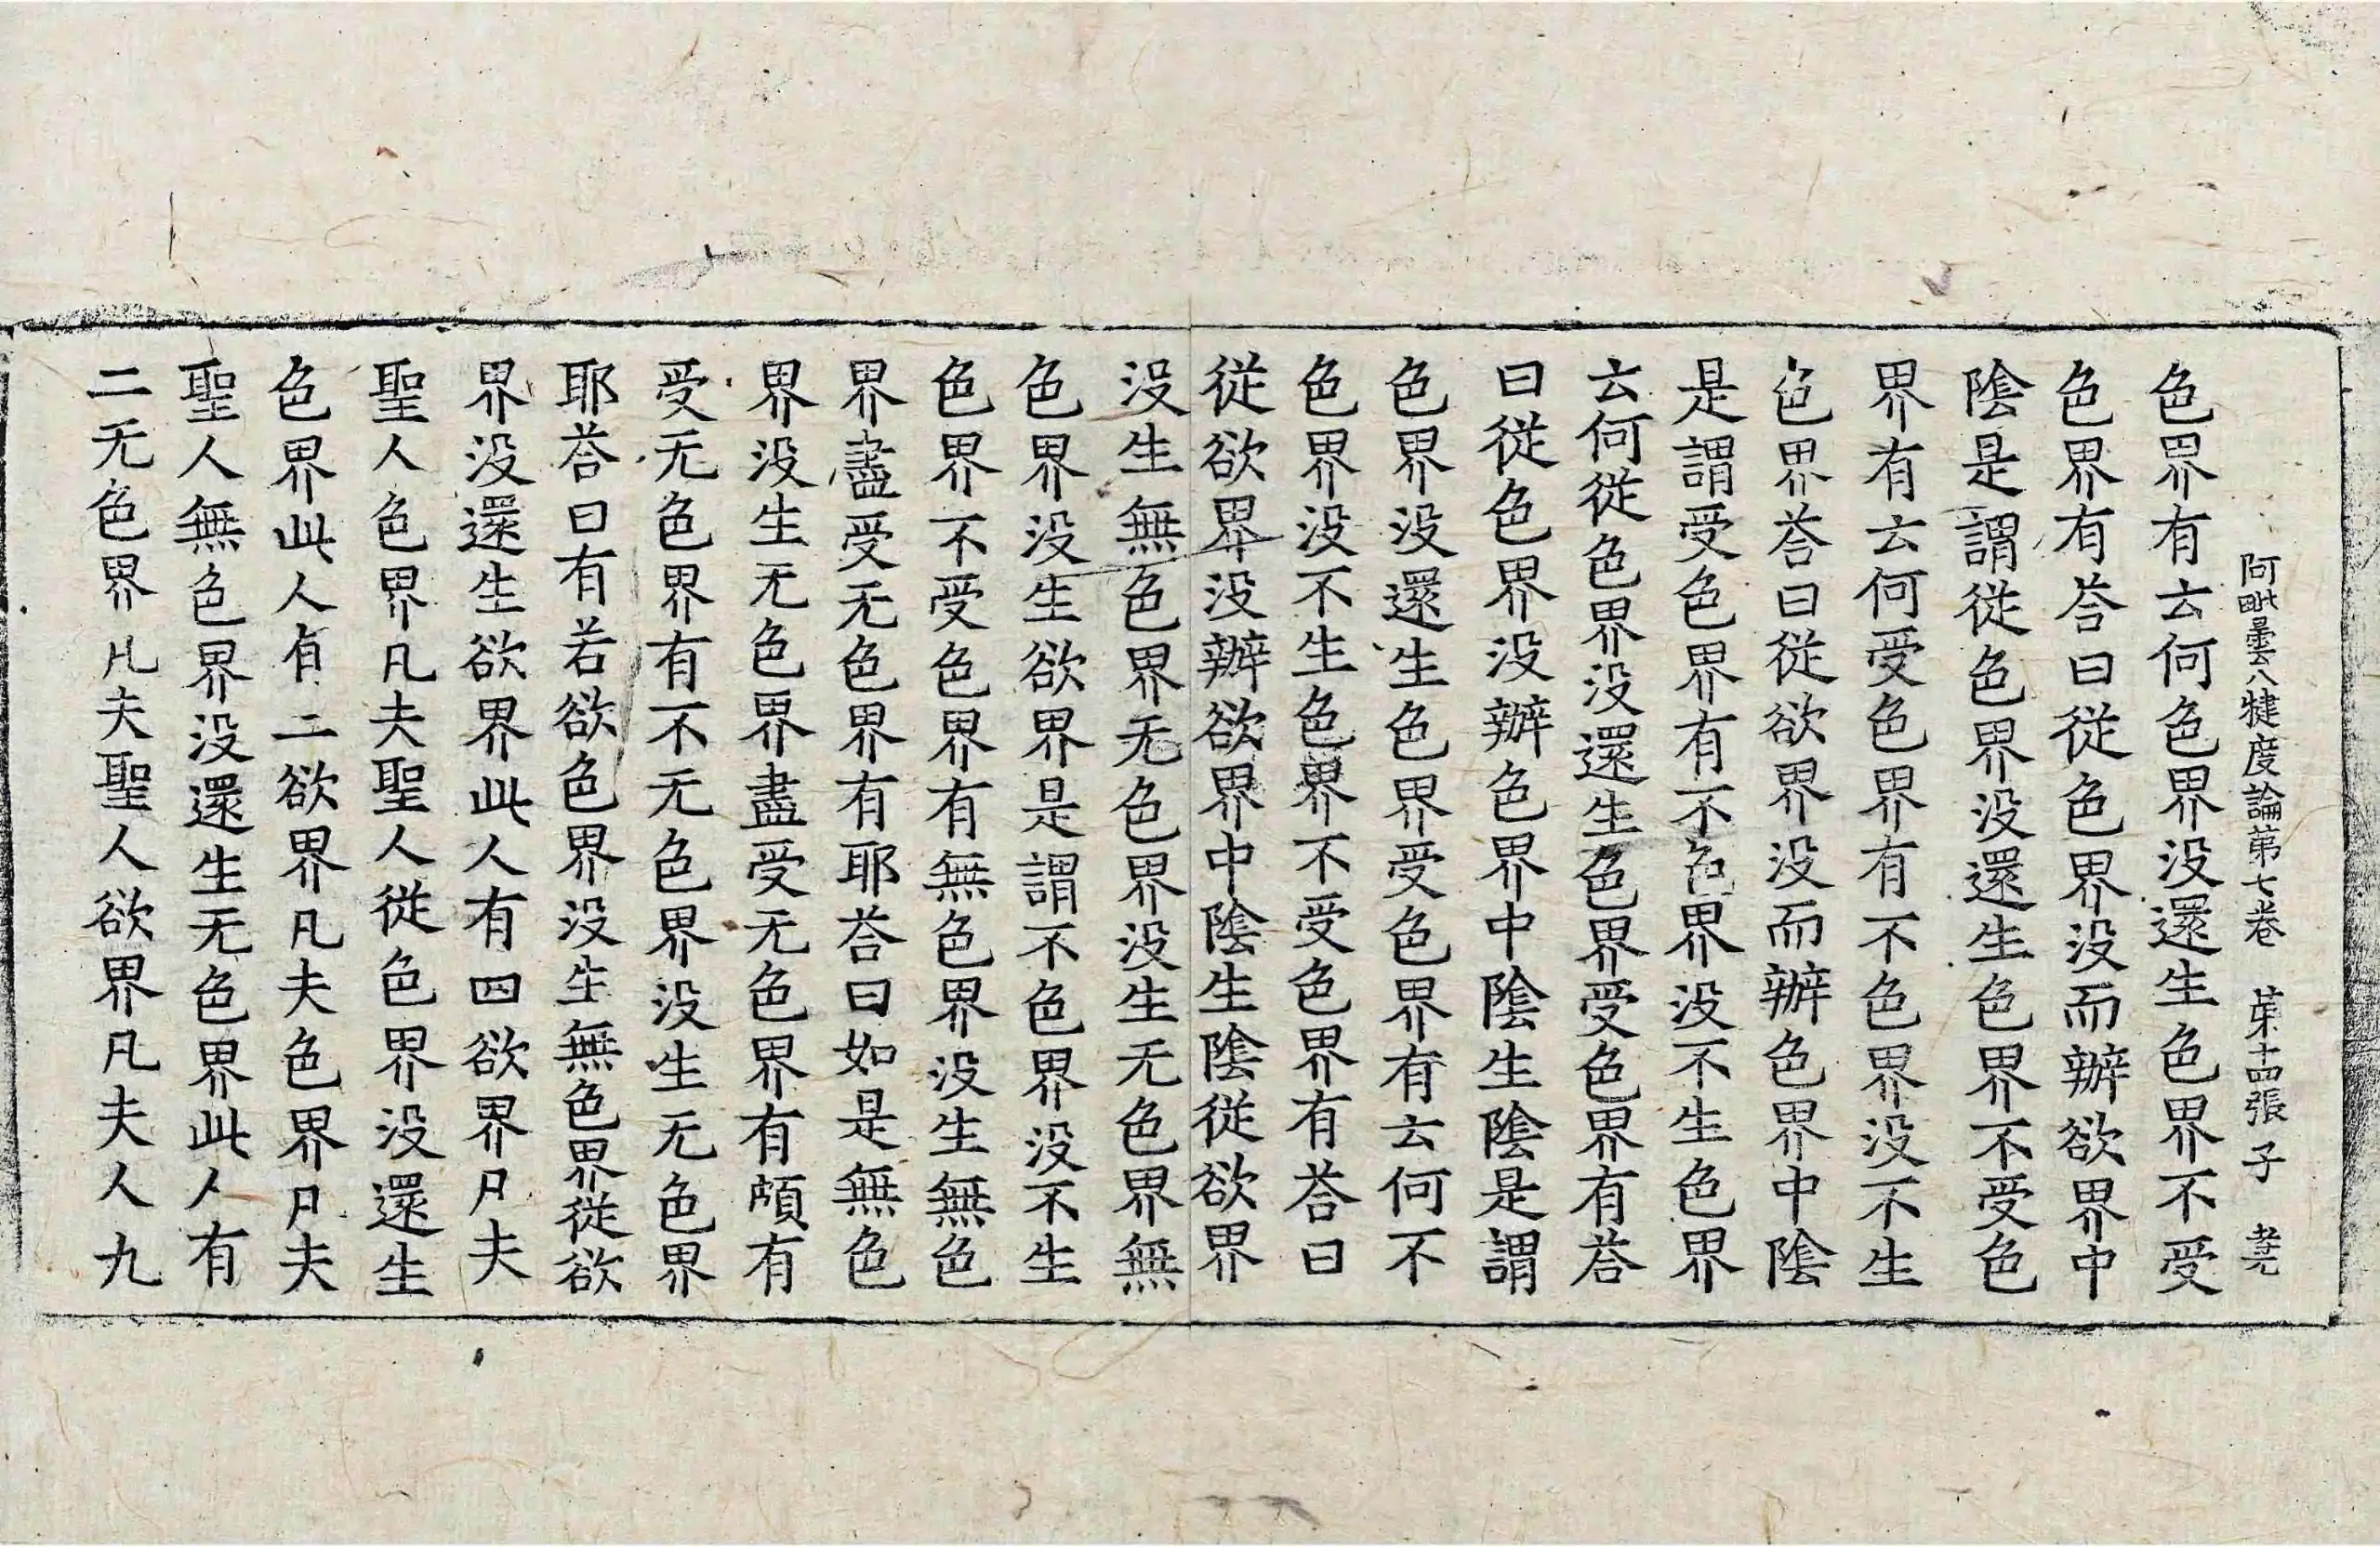 阿毗曇八犍度論第七卷 苐十四張 子
色界有云何色界没還生色界不受
色界有荅曰從色界没而辦欲界中
陰是謂從色界没還生色界不受色
界有云何受色界有不色界没不生
色界荅曰從欲界没而辦色界中陰
是謂受色界有不色界没不生色界
云何從色界没還生色界受色界有荅
曰從色界没辦色界中陰生陰是謂
色界没還生色界受色界有云何不
色界没不生色界不受色界有荅曰
從欲界没辦欲界中陰生陰從欲界
没生無色界无色界没生无色界無
色界没生欲界是謂不色界没不生
色界不受色界有無色界没生無色
界盡受无色界有耶荅曰如是無色
界没生无色界盡受无色界有頗有
受无色界有不无色界没生无色界
耶荅曰有若欲色界没生無色界從欲
界没還生欲界此人有四欲界凡夫
聖人色界凡夫聖人從色界没還生
色界此人有二欲界凡夫色界凡夫
聖人無色界没還生无色界此人有
二无色界凡夫聖人欲界凡夫人九